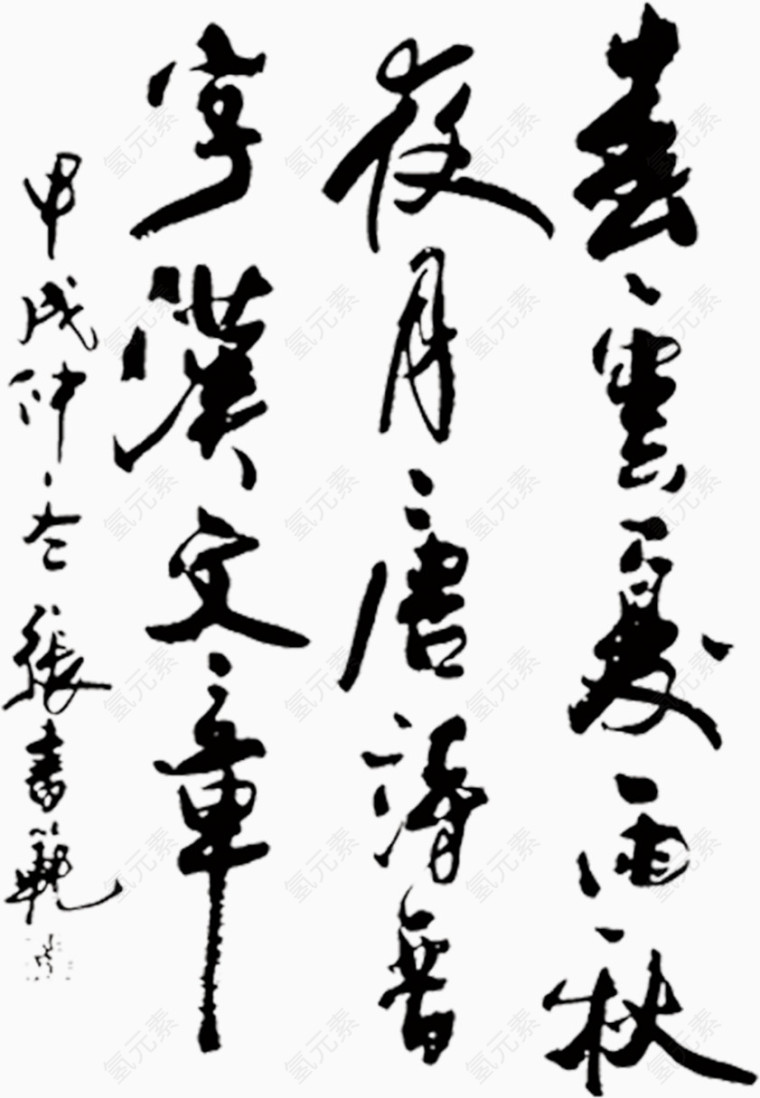 春雲夏雨秋
夜月唐詩晉
字漢文章
甲戌仲冬張書範
氢元素